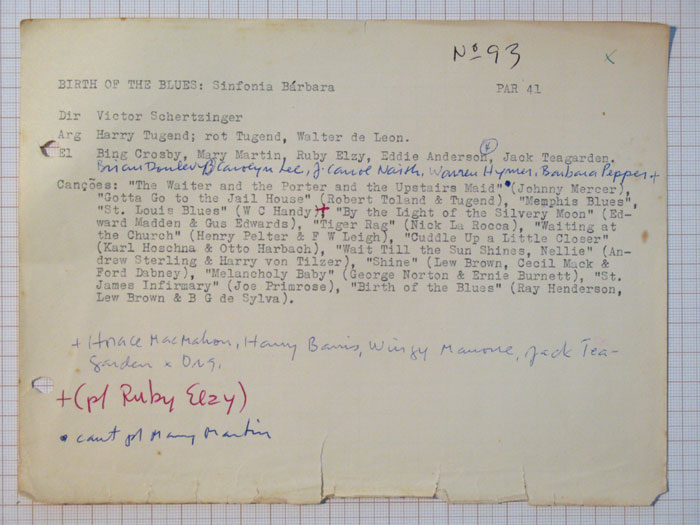 Nº 93
BIRTH OF THE BLUES: Sinfonia Bárbara PAR 41
Dir Victor Schertzinger
Arg Harry Tugend; rot Tugend, Walter de Leon.
El Bing Crosby, Mary Martin, Ruby Elzy, Eddie Anderson, Jack Teagarden.
Brian Donlevy, Carolyn Lee, J. Carrol Naish, Warren Hymer, Barbara Pepper +
Canções: "The Waiter and the Porter and the Upstairs Maid" (Johnny Mercer),
"Gotta Go to the Jail House" (Robert Toland & Tugend), "Memphis Blues",
"St. Louis Blues" (W C Handy)+ "By the Light of the Silvery Moon" (Ed-
ward Madden & Gus Edwards), "Tiger Rag" (Nick La Rocca), "Waiting at
the Church" (Henry Pelter & F W Leigh), "Cuddle Up a Little Closer"
(Karl Hoschna & Otto Harbach), "Wait Till the Sun Shines, Nellie" (An-
drew Sterling & Harry von Tilzer), "Shine" (Lew Brown, Cecil Mack &
Ford Dabney), "Melancholy Baby" (George Norton & Ernie Burnett), "St.
James Infirmary" (Joe Primrose), "Birth of the Blues" (Ray Henderson,
Lew Brown & B G de Sylva).
+ Horace MacMahon, Harry Barris, Wingy Manone, Jack Tea-
garden × Orq.
+(pl Ruby Elzy)
• cant pl Mary Martin